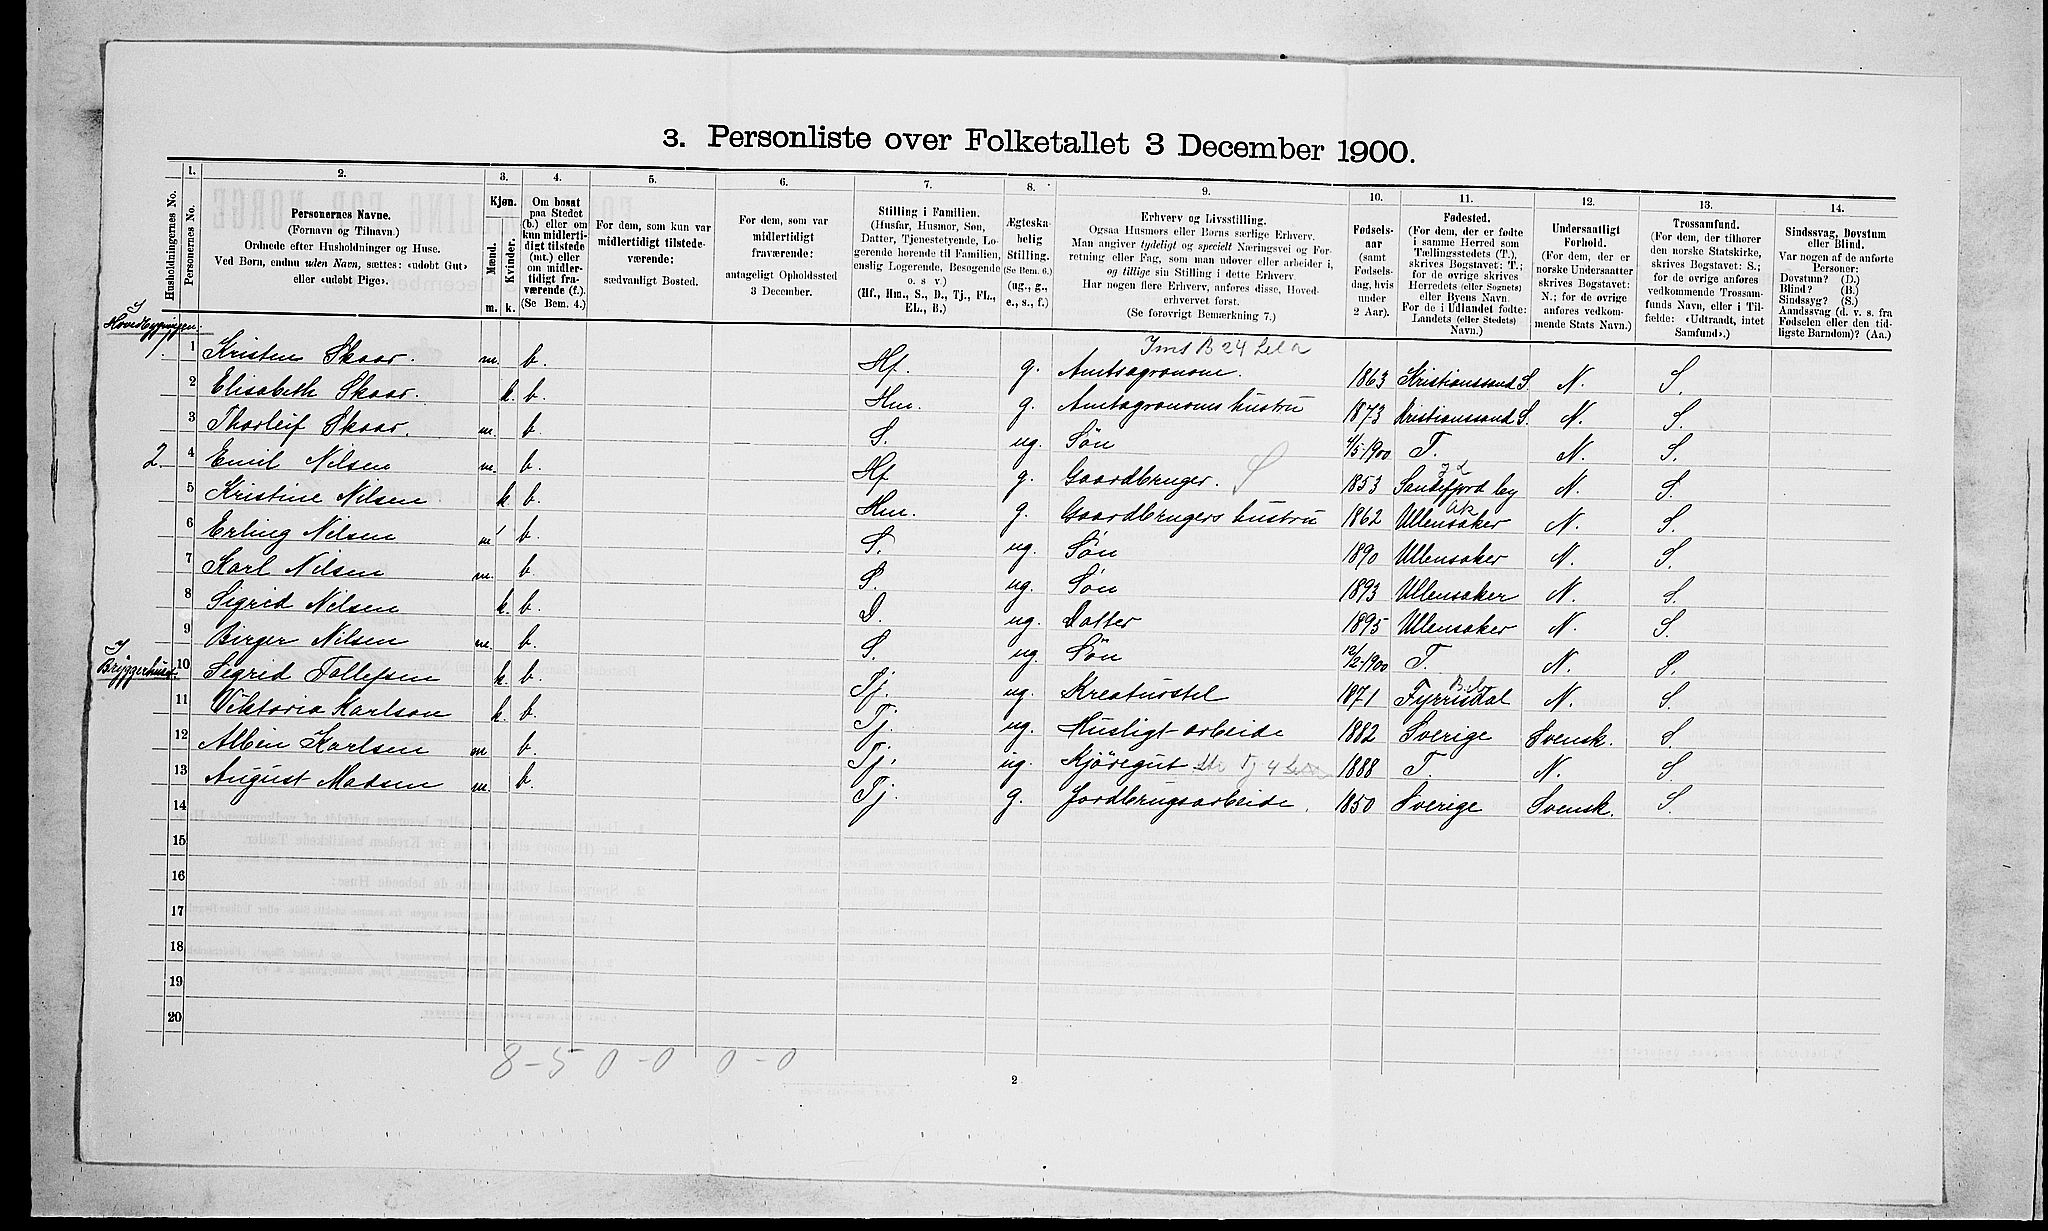 3. Personliste over Folketallet 3 December 1900.
Husholdningernes No.
1. Personernes No.
2. Personernes Navne. (Fornavn og Tilnavn.) Ordnede efter Husholdninger og Huse. Ved Børn, endnu uden Navn, sættes: «udøbt Gut» eller «udøbt Pige».
3. Kjøn. Mænd. m. Kvinder. k.
4. Om bosat paa Stedet (b.) eller om kun midlertidigt tilstede (mt.) eller om midlertidigt fraværende (f.). (Se Bem. 4.)
5. For dem, som kun var midlertidigt tilstedeværende: sædvanligt Bosted.
6. For dem, som var midlertidigt fraværende: antageligt Opholdssted 3 December.
7. Stilling i Familien. (Husfar, Husmor, Søn, Datter, Tjenestetyende, Logerende hørende til Familien, enslig Logerende, Besøgende o. s. v) (Hf., Hm., S., D., Tj., FL., EL., B.)
8. Ægteskabelig Stilling. (Se Bem. 6.) (ug., g., e., s., f.)
9. Erhverv og Livsstilling. Ogsaa Husmors eller Børns særlige Erhverv. Man angiver tydeligt og specielt Næringsvei og Forretning eller Fag, som man udøver eller arbeider i, og tillige sin Stilling i dette Erhverv. Har nogen flere Erhverv, anføres disse, Hovederhvervet først. (Se forøvrigt Bemærkning 7.)
10. Fødselsaar (samt Fødselsdag, hvis under 2 Aar).
11. Fødested. (For dem, der er fødte i samme Herred som Tællingsstedets (T.), skrives Bogstavet: T.; for de øvrige skrives Herredets (eller Sognets) eller Byens Navn. For de i Udlandet fødte: Landets (eller Stedets) Navn.)
12. Undersaatligt Forhold. (For dem, der er norske Undersaatter skrives Bogstavet: N.; for de øvrige anføres vedkommende Stats Navn.)
13. Trossamfund. (For dem, der tilhører den norske Statskirke, skrives Bogstavet: S.; for de øvrige anføres vedkommende Trossamfunds Navn, eller i Tilfælde: «Udtraadt, intet Samfund».)
14. Sindssvag, Døvstum eller Blind. Var nogen af de anførte Personer: Døvstum? (D.) Blind? (B.) Sindssyg? (S.) Aandssvag (d. v. s. fra Fødselen eller den tidligste Barndom)? (Aa.)
Hovedbygningen.
1. 1 Kristen Skaar. m. b. Hf. g. Amtsagronom. 1863 Kristianssand S. N. S.
2 Elisabeth Skaar. k. b. Hm. g. Amtagronoms hustru 1873 Kristianssand S. N. S.
3 Thorleif Skaar. m. b. S. ug. Søn 4/5-1900 T. N. S.
2. 4 Emil Nilsen m. b. Hf g. Gaardbruger. 1853 Sandefjord by N. S.
5 Kristine Nilsen k. b. Hm. g. Gaardbrugers hustru 1862 Ullensaker N. S.
6 Erling Nilsen m b. S. ug. Søn 1890 Ullensaker N. S.
7 Karl Nilsen m. b. S. ug. Søn 1893 Ullensaker N. S.
8 Sigrid Nilsen k. b. D. ug. Datter 1895 Ullensaker N. S.
9 Birger Nilsen m. b. S. ug. Søn 12/2-1900 T. N. S.
Bryggerhuset.
10 Sigrid Tollefsen k. b. Tj. ug. Kreaturstel 1871 Fyrrisdal N. S.
11 Viktoria Karlson k. b. Tj. ug. Husligt arbeide 1882 Sverige Svensk. S.
12 Albin Karlsen m b. Tj. ug. Kjøregut 1888 T. N. S.
13 August Madsen m. b. Tj. g. Jordbrugsarbeide. 1850 Sverige Svensk. S.
14
15
16
17
18
19
20
8-5 0-0 0-0
2